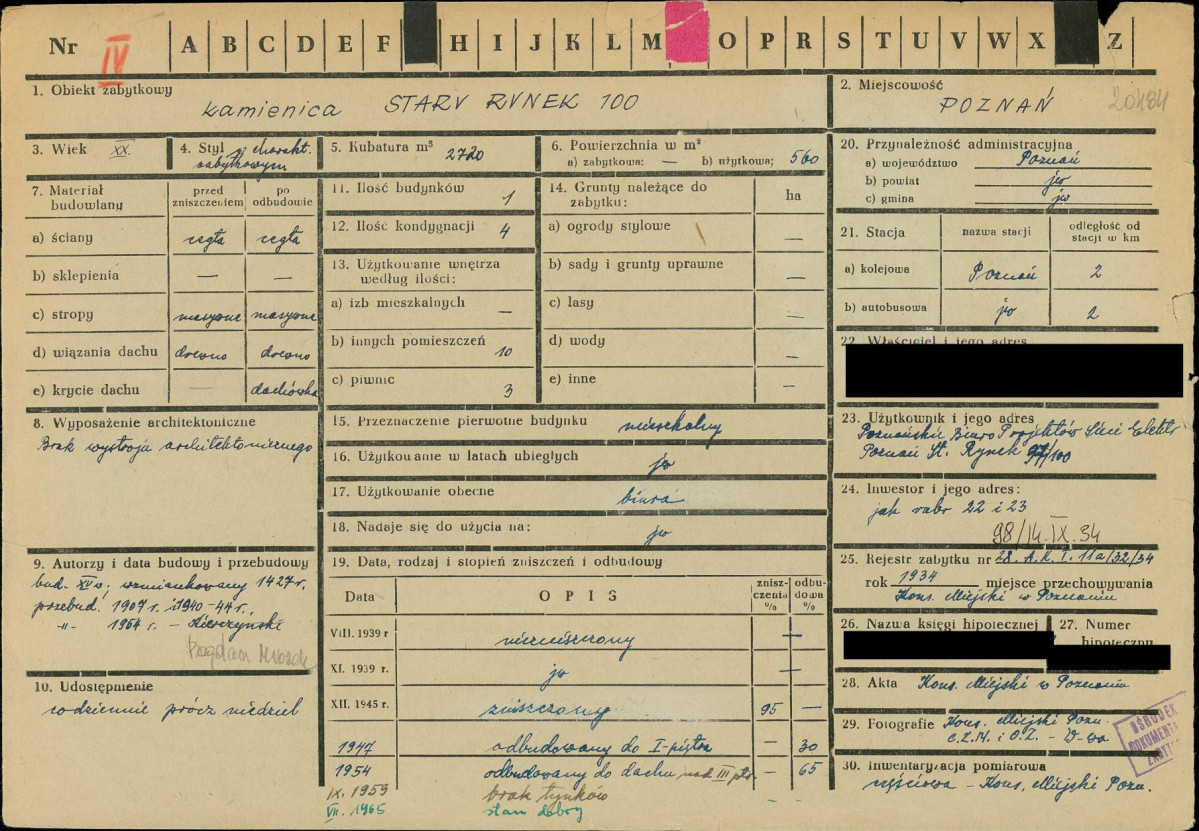 Nr IV A B C D E F H I J K L M O P R S T U V W X Z
1. Obiekt zabytkowy
kamienica STARY RYNEK 100
2. Miejscowość
POZNAŃ 20484
3. Wiek XX.
4. Styl w charakt. zabytkowym
5. Kubatura m³ 2720
6. Powierzchnia w m²
a) zabytkowa: — b) użytkowa: 560
20. Przynależność administracyjna
a) województwo Poznań
b) powiat jw
c) gmina jw
7. Materiał budowlany
przed zniszczeniem
po odbudowie
a) ściany cegła cegła
b) sklepienia — —
c) stropy masywne masywne
d) wiązania dachu drewno drewno
e) krycie dachu — dachówka
11. Ilość budynków 1
12. Ilość kondygnacji 4
13. Użytkowanie wnętrza według ilości:
a) izb mieszkalnych —
b) innych pomieszczeń 10
c) piwnic 3
14. Grunty należące do zabytku: ha
a) ogrody stylowe —
b) sady i grunty uprawne —
c) lasy —
d) wody —
e) inne —
21. Stacja nazwa stacji odległość od stacji w km
a) kolejowa Poznań 2
b) autobusowa jw 2
22. Właściciel i jego adres
8. Wyposażenie architektoniczne
Brak wystroju architektonicznego
15. Przeznaczenie pierwotne budynku mieszkalny
16. Użytkowanie w latach ubiegłych jw
17. Użytkowanie obecne biura
18. Nadaje się do użycia na: jw
23. Użytkownik i jego adres
Poznańskie Biuro Projektów Sieci Elektr
Poznań St. Rynek 97/100
24. Inwestor i jego adres:
jak rubr 22 i 23
98/14.IX.34
25. Rejestr zabytku nr 28. A.K.I. 11a/32/34
rok 1934 miejsce przechowywania
Kons. Miejski w Poznaniu
9. Autorzy i data budowy i przebudowy
bud. XV w, wzmiankowany 1427 r.
przebud. 1907 r. i 1940-44 r.,
-"- 1954 r. —
Bogdan
10. Udostępnienie
codziennie prócz niedziel
19. Data, rodzaj i stopień zniszczeń i odbudowy
Data OPIS zniszczenia % odbudowa %
VIII. 1939 r niezniszczony —
XI. 1939 r. jw —
XII. 1945 r. zniszczony 95 —
1947 odbudowany do I-piętra — 30
1954 odbudowany do dachu nad III ptr. — 65
IX. 1959 brak tynków
VII. 1965 stan dobry —
26. Nazwa księgi hipotecznej
27. Numer hipoteczny
28. Akta Kons. Miejski w Poznaniu
29. Fotografie Kons. Miejski Pozn.
C.Z.M. i O.Z. - W-wa
OŚRODEK
DOKUMENTA
ZABYT
30. Inwentaryzacja pomiarowa
częściowa - Kons. Miejski Pozn.